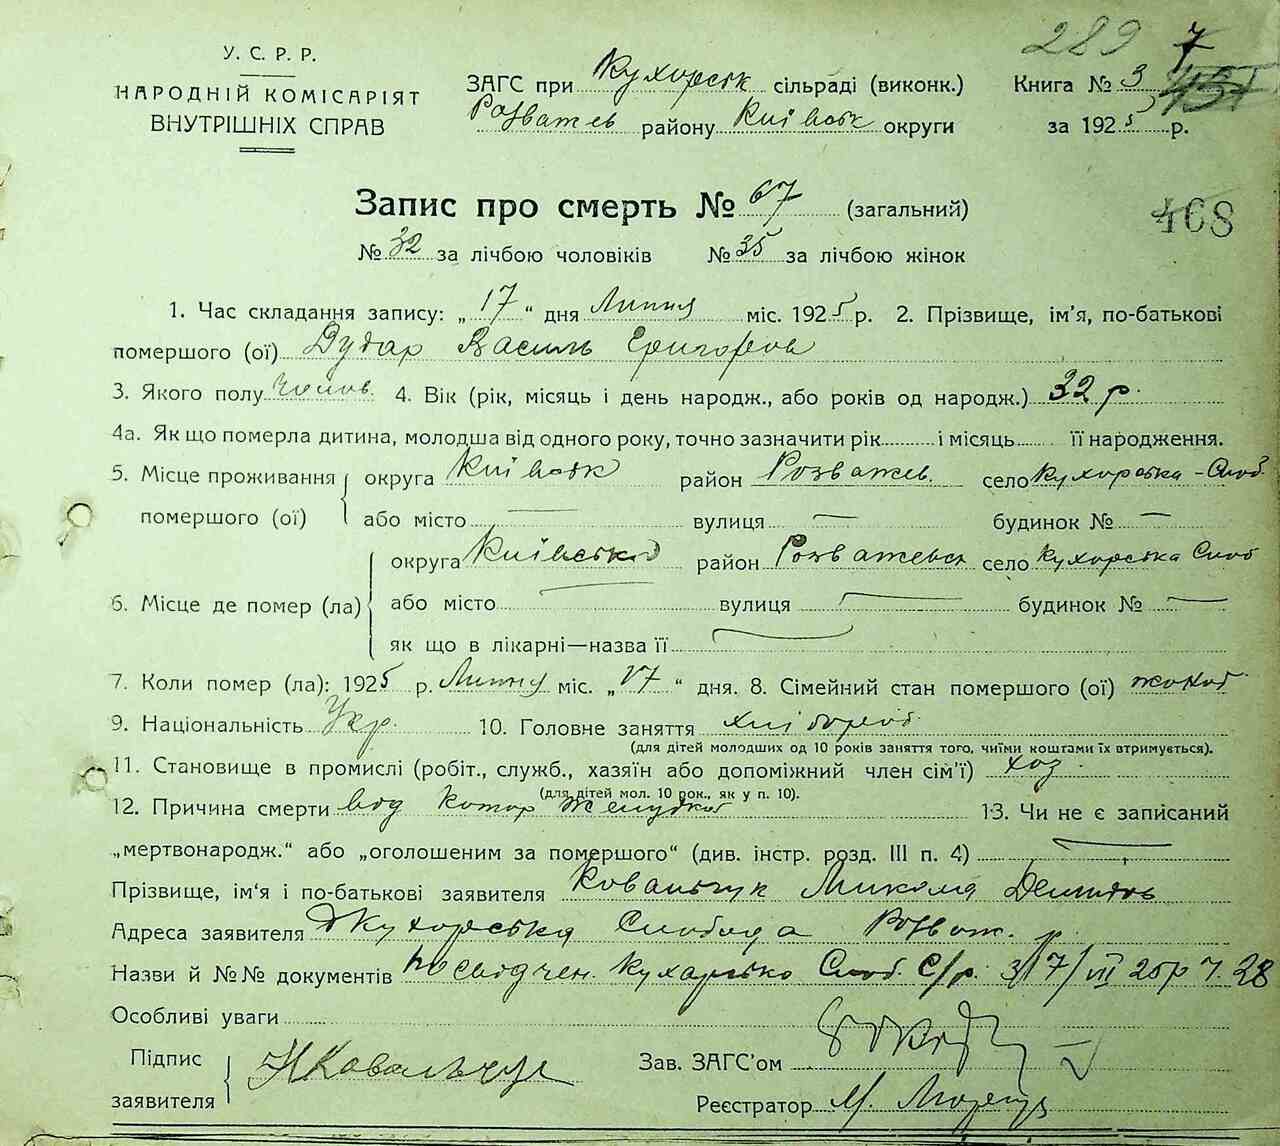 289 7
У. С. Р. Р.
НАРОДНІЙ КОМІСАРІЯТ
ВНУТРІШНІХ СПРАВ
ЗАГС при Кухорськ сільраді (виконк.)
Розважев району Київськ округи
Книга № 3
за 1925 р.
Запис про смерть № 67 (загальний)
468
№ 32 за лічбою чоловіків № 35 за лічбою жінок
1. Час складання запису: „17“ дня Липня міс. 1925 р. 2. Прізвище, ім'я, по-батькові
помершого (ої) Дудар Василь Григоров
3. Якого полу чолов. 4. Вік (рік, місяць і день народж., або років од народж.) 32 р.
4а. Як що померла дитина, молодша від одного року, точно зазначити рік і місяць її народження.
5. Місце проживання округа Київськ район Розважев. село Кухорська-Слоб.
помершого (ої) або місто — вулиця — будинок № —
округа Київська район Розважевськ село Кухорська Слоб
6. Місце де помер (ла) або місто — вулиця — будинок № —
як що в лікарні—назва її —
7. Коли помер (ла): 1925 р. Липню міс. „17“ дня. 8. Сімейний стан помершого (ої) жонат
9. Національність Укр. 10. Головне заняття хлібороб.
(для дітей молодших од 10 років заняття того, чиїми коштами їх втримується).
11. Становище в промислі (робіт., служб., хазяїн або допоміжний член сім'ї) хоз
(для дітей мол. 10 рок., як у п. 10).
12. Причина смерти від Катар Желудка 13. Чи не є записаний
„мертвонародж.“ або „оголошеним за помершого“ (див. інстр. розд. III п. 4) —
Прізвище, ім'я і по-батькові заявителя Ковальчук Микола
Адреса заявителя Кухорська Слобода Розваж. р.
Назви й №№ документів посвідчен. Кухарсько Слоб. С/р. 17/VII 25р ч. 28
Особливі уваги
Підпис
заявителя Н Ковальчук
Зав. ЗАГС'ом
Реєстратор М.